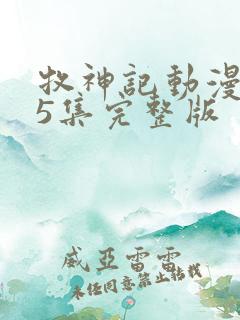 牧神記動漫
5集完整版
威亞雷雷
未任同意禁止轉載